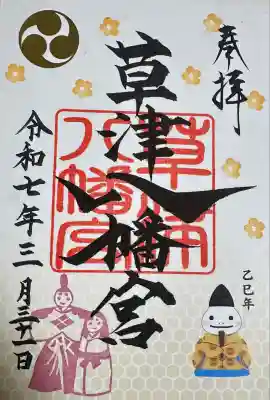 奉拝
草津八幡宮
草津
八幡宮
令和七年三月
日
乙巳年